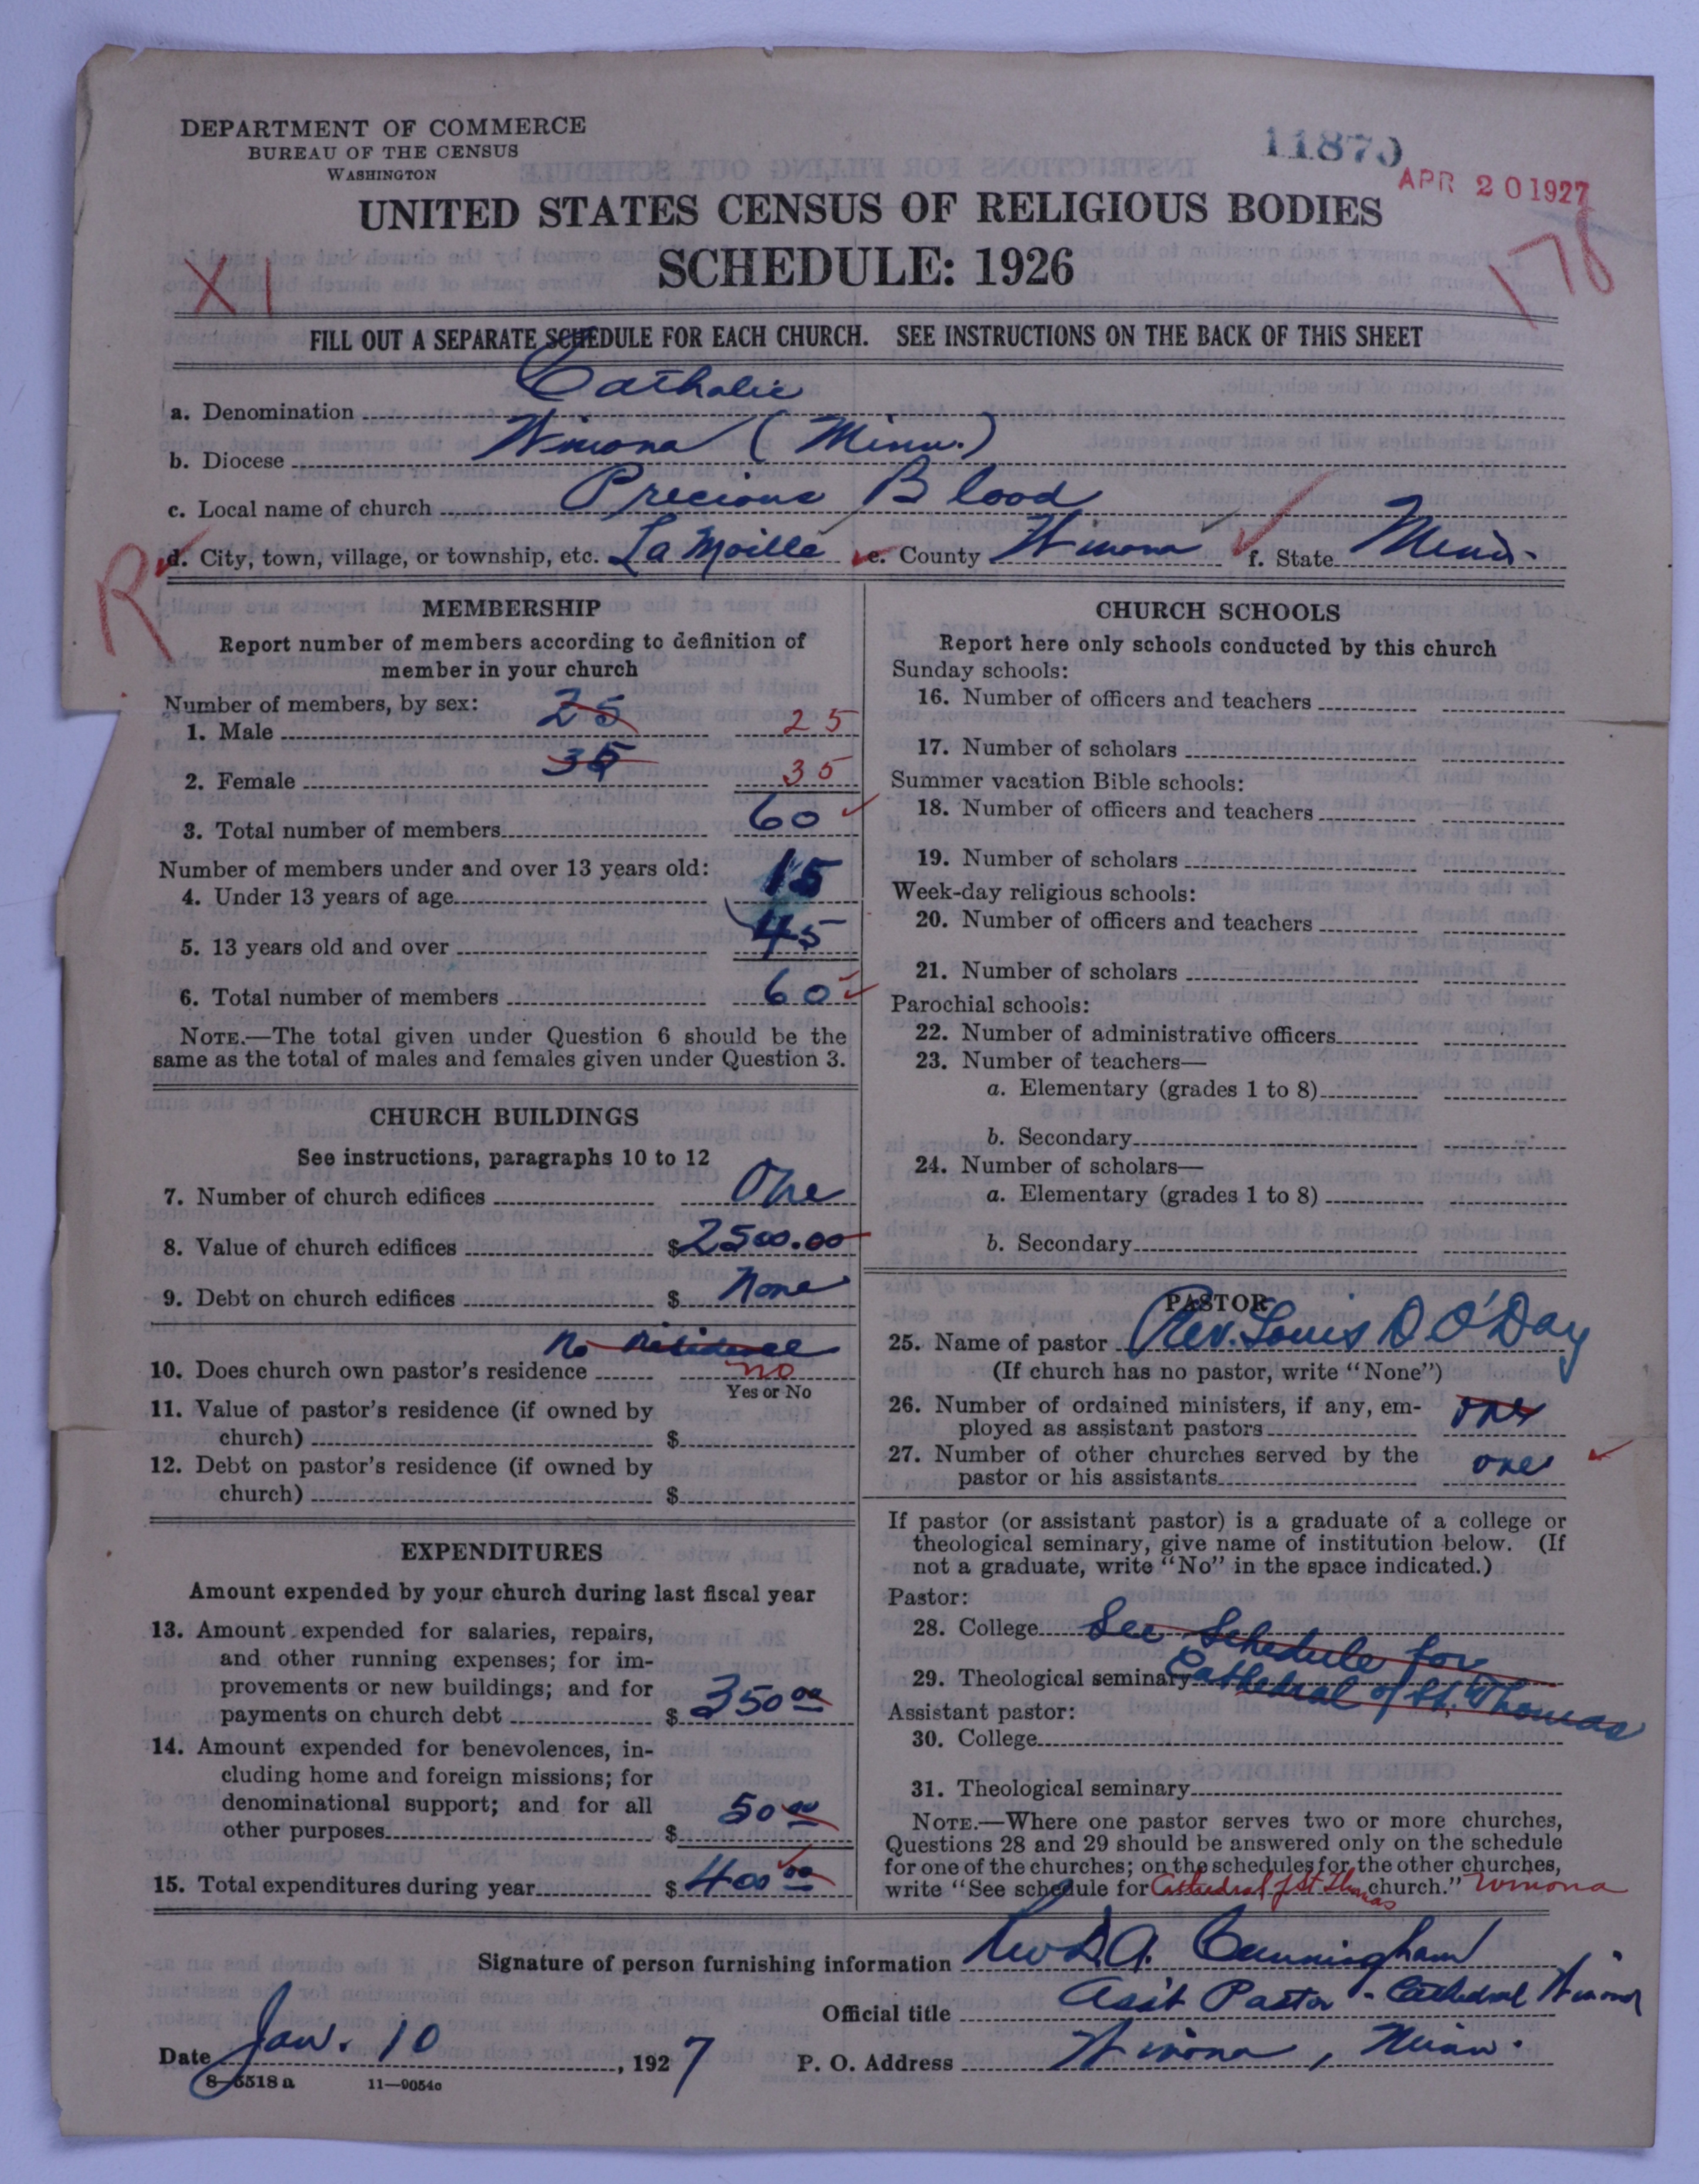 DEPARTMENT OF COMMERCE
BUREAU OF THE CENSUS
WASHINGTON
11870
APR 20 1927
UNITED STATES CENSUS OF RELIGIOUS BODIES
SCHEDULE: 1926
X1
178
FILL OUT A SEPARATE SCHEDULE FOR EACH CHURCH. SEE INSTRUCTIONS ON THE BACK OF THIS SHEET
a. Denomination Catholic
b. Diocese Winona (Minn.)
c. Local name of church Precious Blood
d. City, town, village, or township, etc. La Moille e. County Winona f. State Minn.
R
MEMBERSHIP
Report number of members according to definition of
member in your church
Number of members, by sex:
1. Male 25 25
2. Female 35 35
3. Total number of members 60
Number of members under and over 13 years old:
4. Under 13 years of age 15
5. 13 years old and over 45
6. Total number of members 60
NOTE.—The total given under Question 6 should be the
same as the total of males and females given under Question 3.
CHURCH BUILDINGS
See instructions, paragraphs 10 to 12
7. Number of church edifices One
8. Value of church edifices $2500.00
9. Debt on church edifices $ None
No residence
10. Does church own pastor's residence no
Yes or No
11. Value of pastor's residence (if owned by
church) $
12. Debt on pastor's residence (if owned by
church) $
EXPENDITURES
Amount expended by your church during last fiscal year
13. Amount expended for salaries, repairs,
and other running expenses; for im-
provements or new buildings; and for
payments on church debt $ 350 00
14. Amount expended for benevolences, in-
cluding home and foreign missions; for
denominational support; and for all
other purposes $ 50 00
15. Total expenditures during year $ 400 00
CHURCH SCHOOLS
Report here only schools conducted by this church
Sunday schools:
16. Number of officers and teachers
17. Number of scholars
Summer vacation Bible schools:
18. Number of officers and teachers
19. Number of scholars
Week-day religious schools:
20. Number of officers and teachers
21. Number of scholars
Parochial schools:
22. Number of administrative officers
23. Number of teachers—
a. Elementary (grades 1 to 8)
b. Secondary
24. Number of scholars—
a. Elementary (grades 1 to 8)
b. Secondary
PASTOR
25. Name of pastor Rev. Louis D O'Day
(If church has no pastor, write "None")
26. Number of ordained ministers, if any, em-
ployed as assistant pastors one
27. Number of other churches served by the
pastor or his assistants one
If pastor (or assistant pastor) is a graduate of a college or
theological seminary, give name of institution below. (If
not a graduate, write "No" in the space indicated.)
Pastor:
28. College See Schedule for
29. Theological seminary Cathedral of St. Thomas
Assistant pastor:
30. College
31. Theological seminary
NOTE.—Where one pastor serves two or more churches,
Questions 28 and 29 should be answered only on the schedule
for one of the churches; on the schedules for the other churches,
write "See schedule for Cathedral of St Thomas church." Winona
Signature of person furnishing information Rev D.A. Cunningham
Official title Ass't Pastor - Cathedral Winona
Date Jan. 10, 1927 P. O. Address Winona, Minn.
8—5518 a 11—9054c